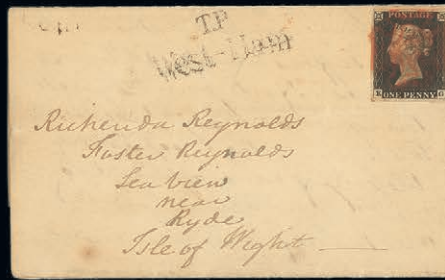 T.P
West-Ham
POSTAGE
ONE PENNY
Richenda Reynolds
Foster Reynolds
Sea View
near
Ryde
Isle of Wight